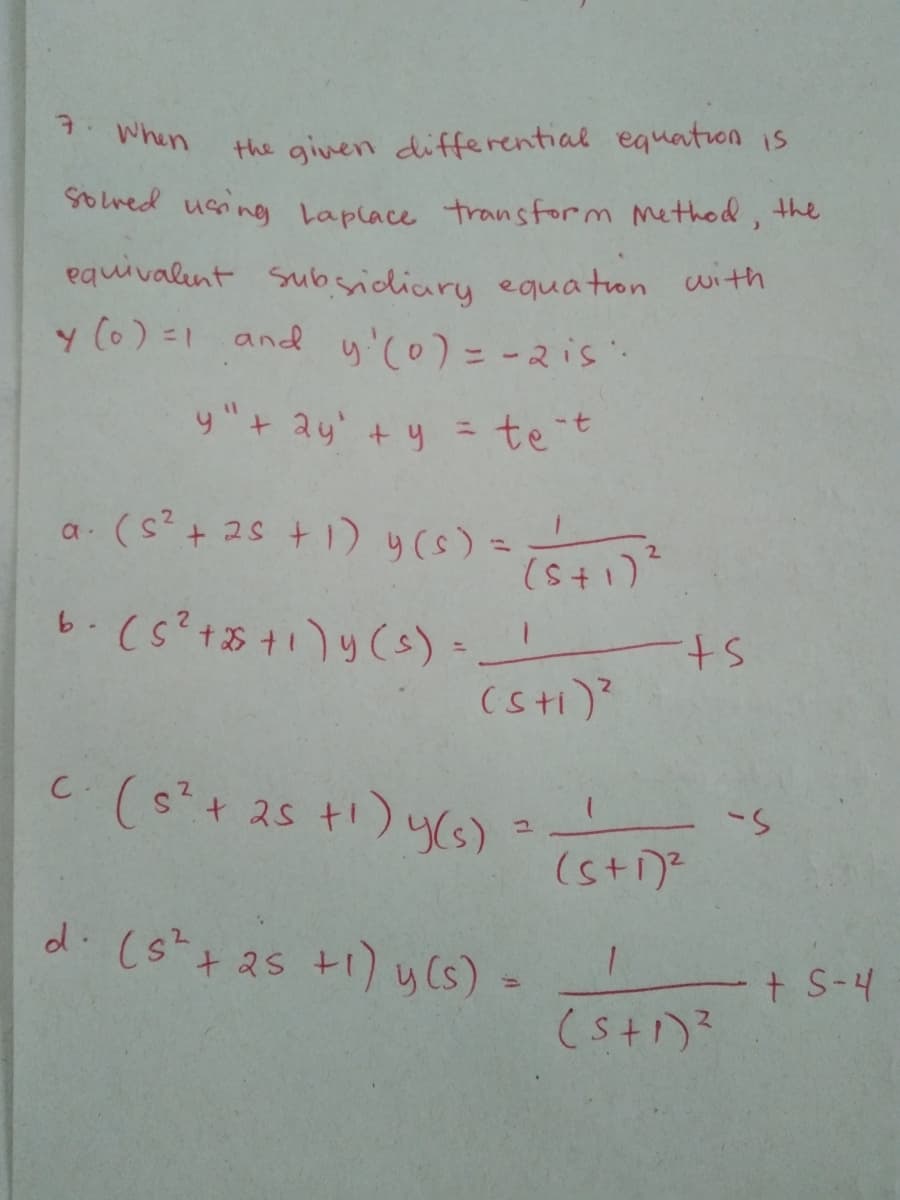 7. When the given differential equation is
solved using Laplace transform Method, the
equivalent subsidiary equation with
y(0)=1 and y'(0)=-2 is:
y"+ 2y' + y = te^-t
a. (s² + 2s + 1) y(s) = 1/(s+1)²
b. (s²+2s+1) y(s) = 1/(s+1)² +s
c. (s²+ 2s +1) y(s) = 1/(s+1)² -s
d. (s²+ 2s +1) y(s) = 1/(s+1)² + s-4